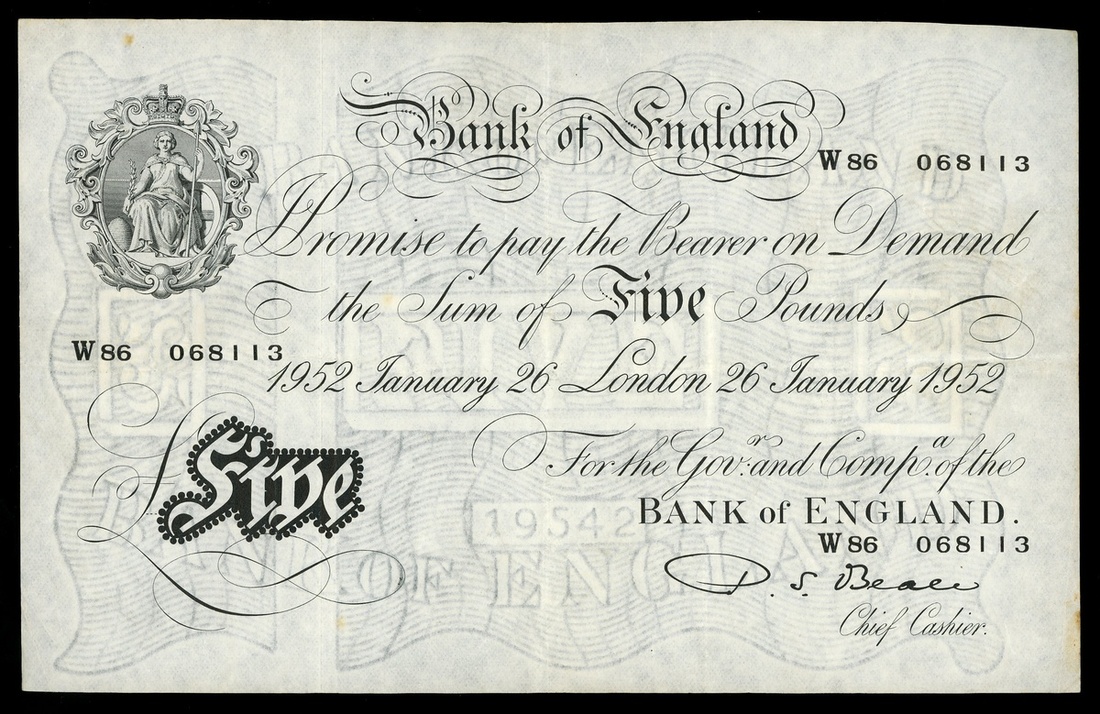 Bank of England
W86 068113
I Promise to pay the Bearer on Demand
the Sum of Five Pounds
W86 068113
1952 January 26 London 26 January 1952
For the Gov.r and Comp.a of the
£Five
BANK of ENGLAND.
W86 068113
P. S. Beale
Chief Cashier.
FIVE
19542
BANK OF ENGLAND